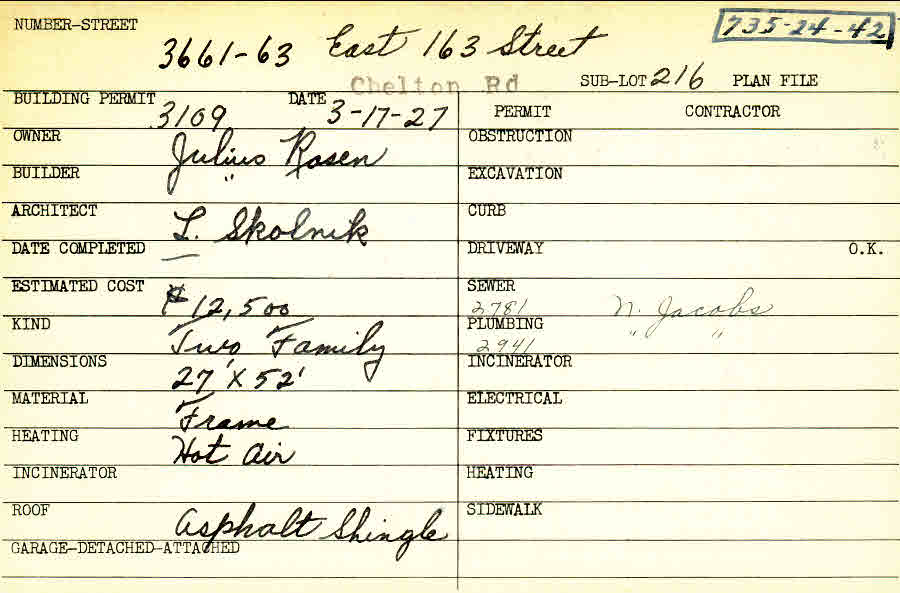 NUMBER-STREET 3661-63 East 163 Street 735-24-42
Chelton Rd SUB-LOT 216 PLAN FILE
BUILDING PERMIT 3109 DATE 3-17-27 PERMIT CONTRACTOR
OWNER Julius Rosen OBSTRUCTION
BUILDER " EXCAVATION
ARCHITECT L. Skolnik CURB
DATE COMPLETED — DRIVEWAY O.K.
ESTIMATED COST $12,500 SEWER 2781 N. Jacobs
KIND Two Family PLUMBING 2941 " "
DIMENSIONS 27' X 52' INCINERATOR
MATERIAL Frame ELECTRICAL
HEATING Hot Air FIXTURES
INCINERATOR HEATING
ROOF Asphalt Shingle SIDEWALK
GARAGE-DETACHED-ATTACHED